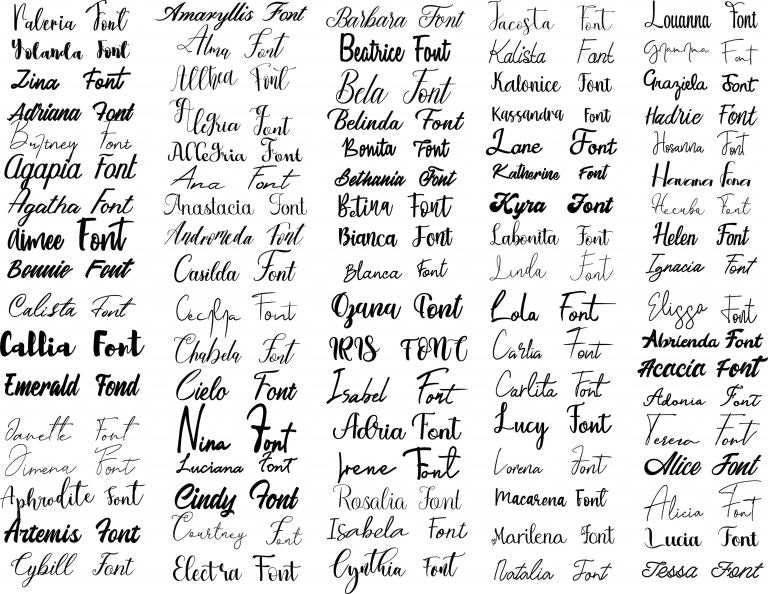 Valeria Font
Yolanda Font
Zina Font
Adriana Font
Britney Font
Agapia Font
Agatha Font
Aimee Font
Bonnie Font
Calista Font
Callia Font
Emerald Fond
Janette Font
Jimena Font
Aphrodite Font
Artemis Font
Cybill Font
Amaryllis Font
Alma Font
Allthea Font
Alegria Font
Allegria Font
Ana Font
Anastacia Font
Andromeda Font
Casilda Font
Cecilya Font
Chabela Font
Cielo Font
Nina Font
Luciana Font
Cindy Font
Courtney Font
Electra Font
Barbara Font
Beatrice Font
Bela Font
Belinda Font
Bonita Font
Bethania Font
Betina Font
Bianca Font
Blanca Font
Ozana Font
IRIS FONT
Isabel Font
Adria Font
Irene Font
Rosalia Font
Isabela Font
Cynthia Font
Jacosta Font
Kalista Font
Kalonice Font
Kassandra Font
Lane Font
Katherine Font
Kyra Font
Labonita Font
Linda Font
Lola Font
Carlia Font
Carlita Font
Lucy Font
Lorena Font
Macarena Font
Marilena Font
Natalia Font
Louanna Font
Font
Graziela Font
Hadrie Font
Hosanna Font
Havana Fona
Hecuba Font
Helen Font
Ignacia Font
Elissa Font
Abrienda Font
Acacia Font
Adonia Font
Tereza Font
Alice Font
Alicia Font
Lucia Font
Tessa Font